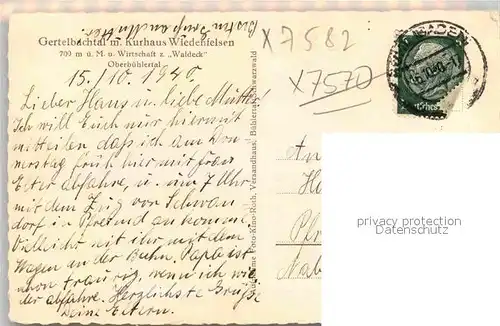 Besten
Gertelbachtal m. Kurhaus Wiedenfelsen
700 m ü. M. u. Wirtschaft z. „Waldeck"
Oberbühlertal
X7582
X7570
15./10. 1940.
Lieber Haus u. liebe Mutter!
Ich will Euch nur hiermit
mitteilen daß ich am Don-
nerstag früh hier mit Frau
Eter abfahre, u. um 7 Uhr
mit dem Zug von Schwan
dorf in Pfreimd ankomme.
Vielleicht seit ihr mit dem
Wagen an der Bahn. Papa ist
schon traurig, wenn ich wie
der abfahre. Herzlichste Grüße
Deine Eltern.
Foto-Kino-Rich. Versandhaus, Bühlertal/Schwarzwald
BADEN
15.10.40.-1
An
Pfr
Nab
privacy protection